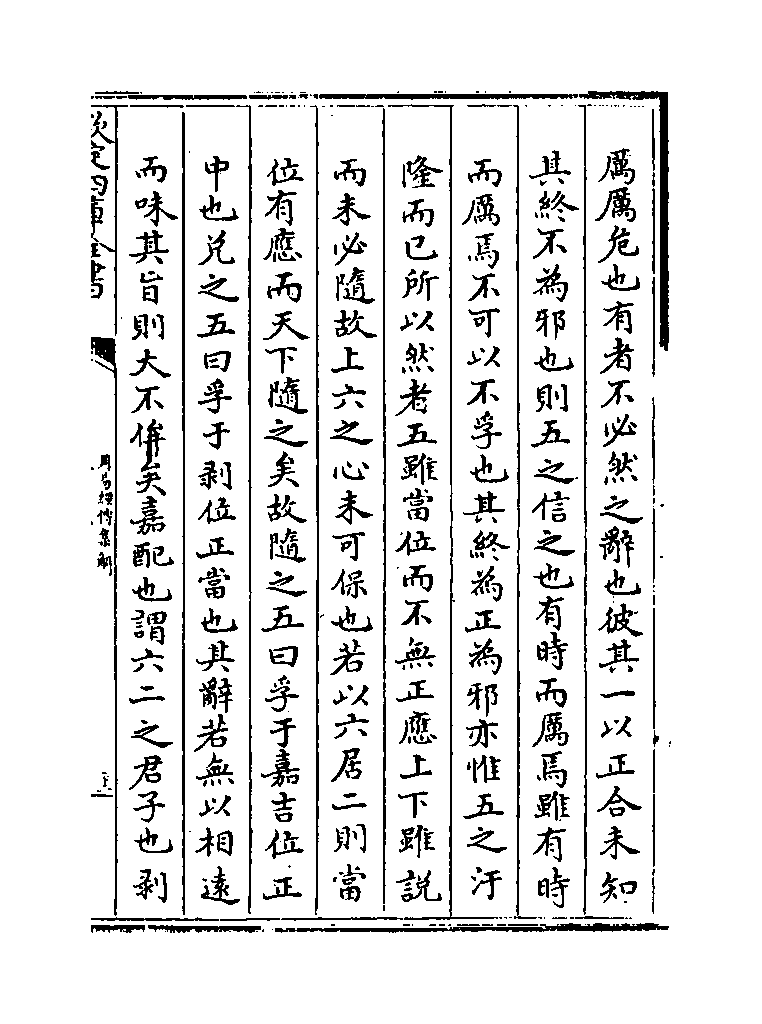 厲厲危也有者不必然之辭也彼其一以正合未知
其終不為邪也則五之信之也有時而厲焉雖有時
而厲焉不可以不孚也其終為正為邪亦惟五之汙
隆而已所以然者五雖當位而不無正應上下雖説
而未必隨故上六之心未可保也若以六居二則當
位有應而天下隨之矣故隨之五曰孚于嘉吉位正
中也兌之五曰孚于剥位正當也其辭若無以相逺
而味其旨則大不侔矣嘉配也謂六二之君子也剥
欽定四庫全書
周易經傳集解